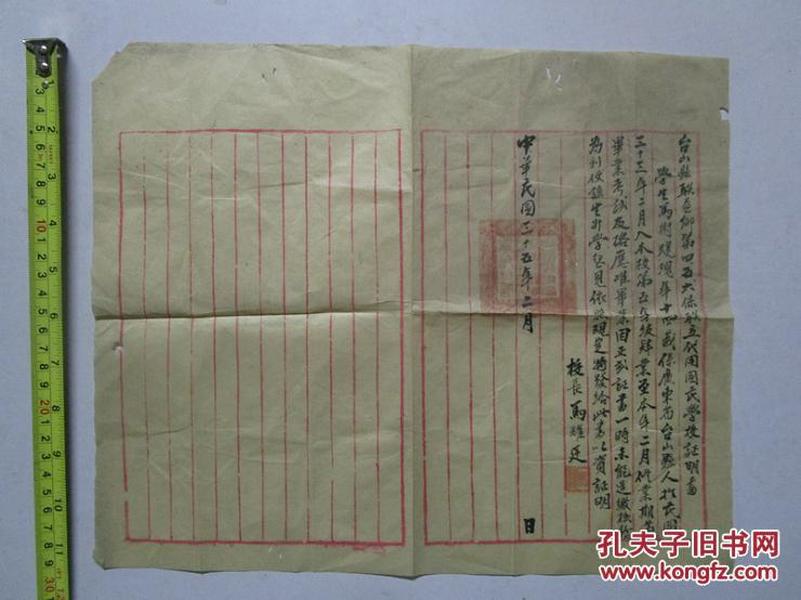 台山縣聯邑鄉第四五六保私立代用國民學校証明書
學生馬樹駿現年十四歲係廣東省台山縣人於民國
三十三年二月入本校第五年級肄業至本年二月修業期滿
畢業考試及格應准畢業因正式証書一時未能送繳換給
為利便該生升學起見依照規定特發給此書以資証明
校長馬維廷
中華民國三十五年二月 日
孔夫子旧书网
www.kongfz.com